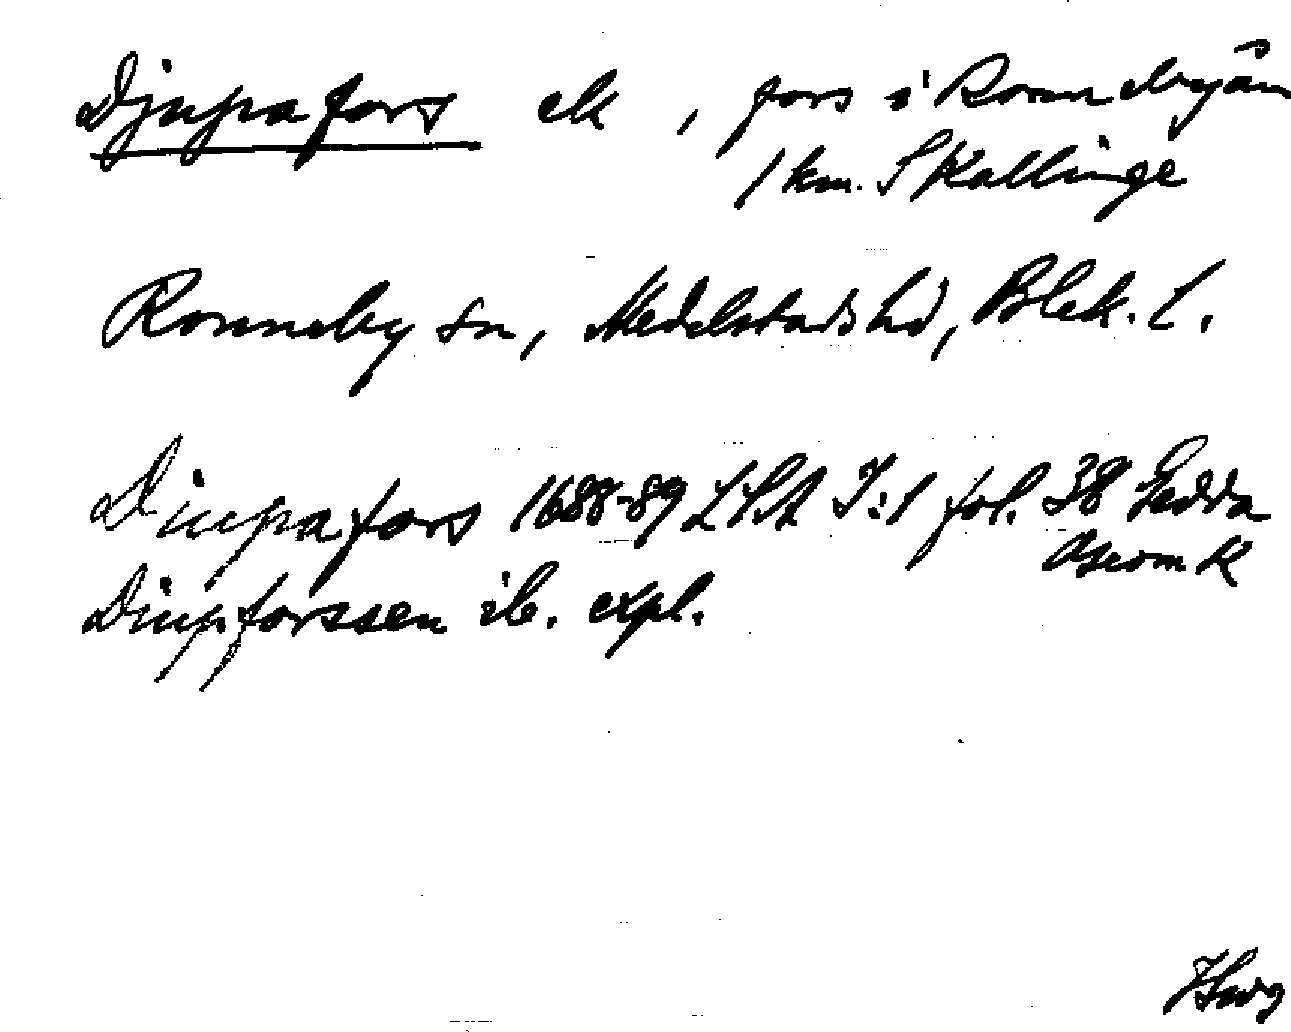 Djupafors ek , fors i Ronnebyån
1 km. S Kallinge
Ronneby sn, Medelstads hd, Blek. l.
Diupafors 1688-89 LSA I:1 fol. 38 Gedda
Diupforssen ib. expl.